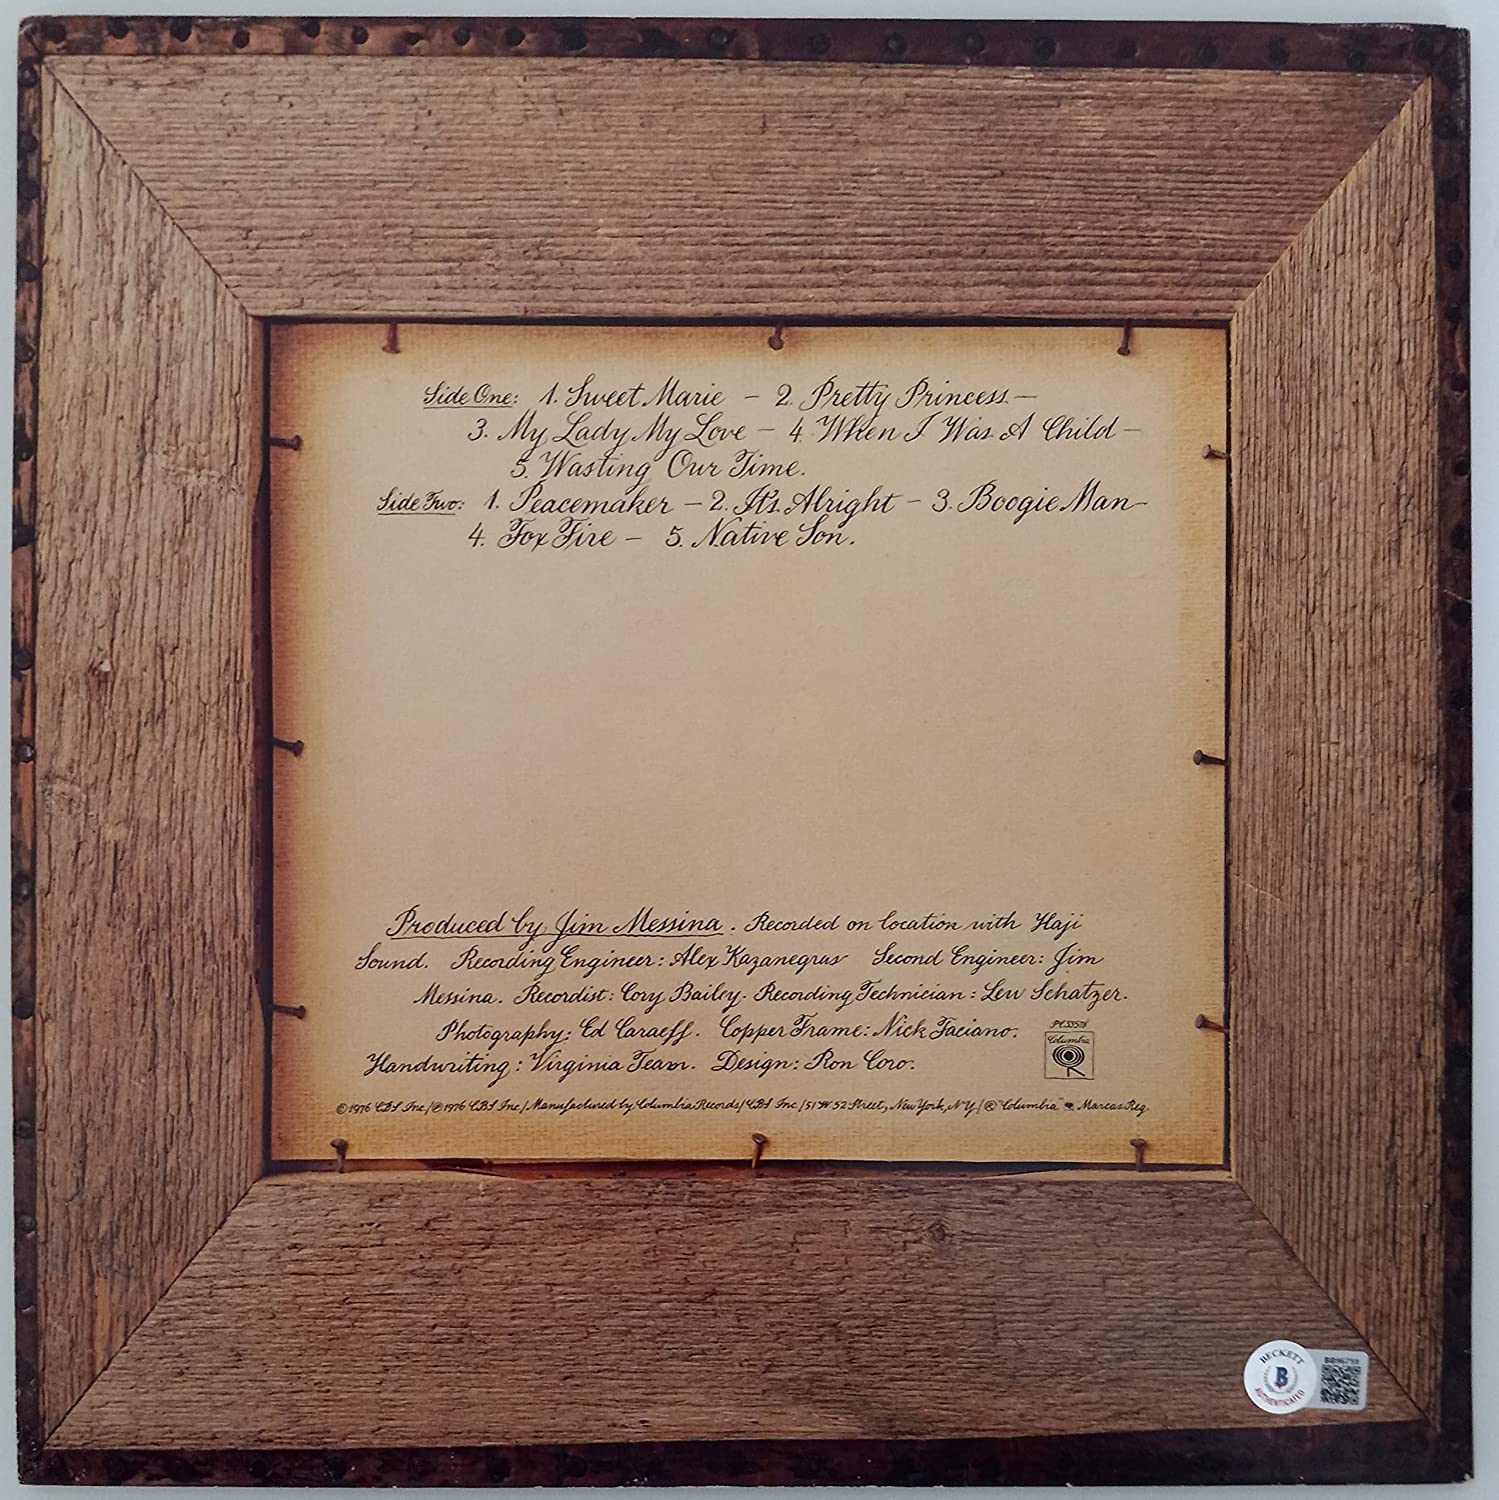 Side One: 1. Sweet Marie - 2. Pretty Princess -
3. My Lady, My Love - 4. When I Was A Child -
5. Wasting Our Time.
Side Two: 1. Peacemaker - 2. It's Alright - 3. Boogie Man -
4. Fox Fire - 5. Native Son.
Produced by Jim Messina. Recorded on location with Haji
Sound. Recording Engineer: Alex Kazanegras Second Engineer: Jim
Messina. Recordist: Cory Bailey. Recording Technician: Lew Schatzer.
Photography: Ed Caraeff. Copper Frame: Nick Faciano.
PC 33578
Columbia
Handwriting: Virginia Team. Design: Ron Coro.
© 1976 CBS Inc./℗ 1976 CBS Inc./Manufactured by Columbia Records/CBS Inc./51 W 52 Street, New York, N.Y./® "Columbia", Marcas Reg.
BECKETT
B
AUTHENTICATED